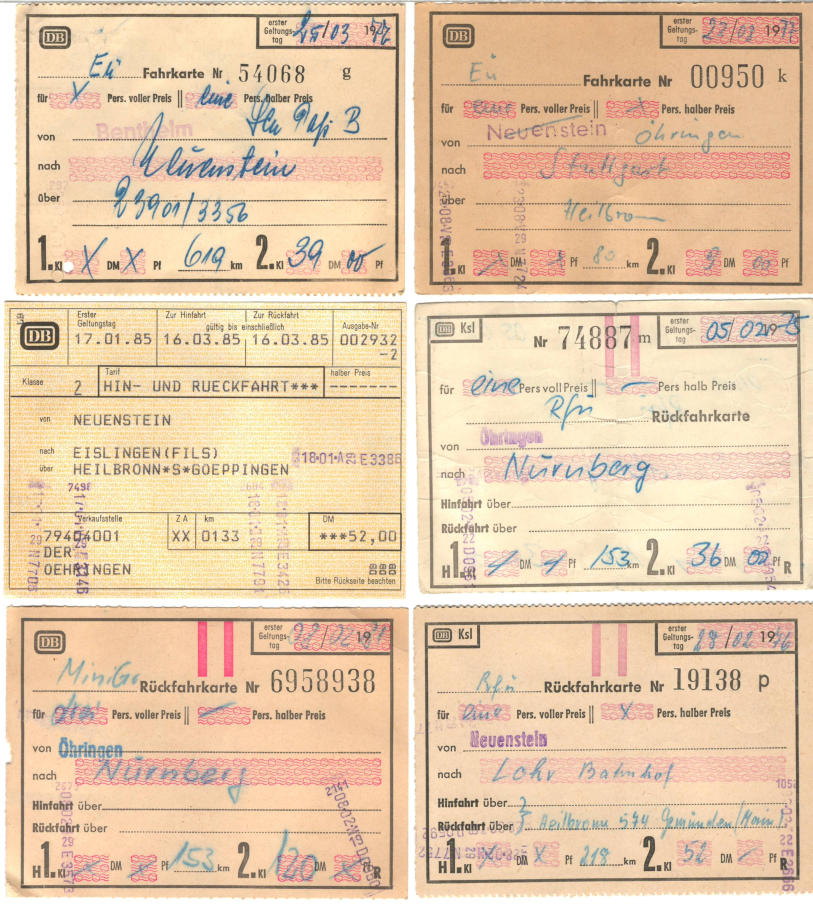 DB
erster Geltungs-tag 25/03 1977
Eü Fahrkarte Nr 54068 g
für X Pers. voller Preis || eine Pers. halber Preis
von Bentheim
nach Neuenstein
über 23901/3356
1.Kl X DM X Pf 619 km 2.Kl 39 DM 00 Pf
DB
erster Geltungs-tag 27/03 1977
Eü Fahrkarte Nr 00950 k
für eine Pers. voller Preis || X Pers. halber Preis
von Neuenstein Öhringen
nach Stuttgart
über Heilbronn
1.Kl X DM X Pf 80 km 2.Kl 9 DM 00 Pf
DB
Erster Geltungstag 17.01.85
Zur Hinfahrt Zur Rückfahrt
gültig bis einschließlich
16.03.85 16.03.85
Ausgabe-Nr 002932
-2
Klasse 2
Tarif HIN- UND RUECKFAHRT***
halber Preis -------
von NEUENSTEIN
nach EISLINGEN(FILS)
über HEILBRONN*S*GOEPPINGEN
Verkaufsstelle 79404001
DER
OEHRINGEN
ZA XX
km 0133
DM ***52,00
Bitte Rückseite beachten
DB Ksl
Nr 74887 m
erster Geltungs-tag 05/02 1975
für eine Pers voll Preis || – Pers halb Preis
Rfü Rückfahrkarte
von Öhringen
nach Nürnberg
Hinfahrt über
Rückfahrt über
H 1.Kl DM Pf 153 km 2.Kl 36 DM 00 Pf R
DB
erster Geltungs-tag
Rückfahrkarte Nr 6958938
für Pers. voller Preis || – Pers. halber Preis
von Öhringen
nach Nürnberg
Hinfahrt über
Rückfahrt über
H 1.Kl X DM X Pf 153 km 2.Kl 120 DM X Pf R
DB Ksl
erster Geltungs-tag 28/02 1976
Rfü Rückfahrkarte Nr 19138 p
für eine Pers. voller Preis || X Pers. halber Preis
von Neuenstein
nach Lohr Bahnhof
Hinfahrt über
Rückfahrt über Heilbronn 574 Gemünden (Main)
H 1.Kl X DM X Pf 218 km 2.Kl 52 DM – Pf R